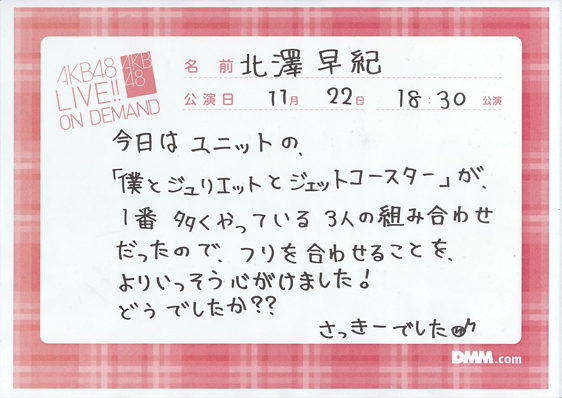 AKB48
LIVE!!
ON DEMAND
AKB
48
名 前 北澤 早紀
公演日 11月 22日 18:30 公演
今日は ユニットの、
「僕とジュリエットとジェットコースター」が、
1番 多くやっている 3人の組み合わせ
だったので、フリを合わせることを、
よりいっそう心がけました!
どうでしたか??
さっきーでした
DMM.com